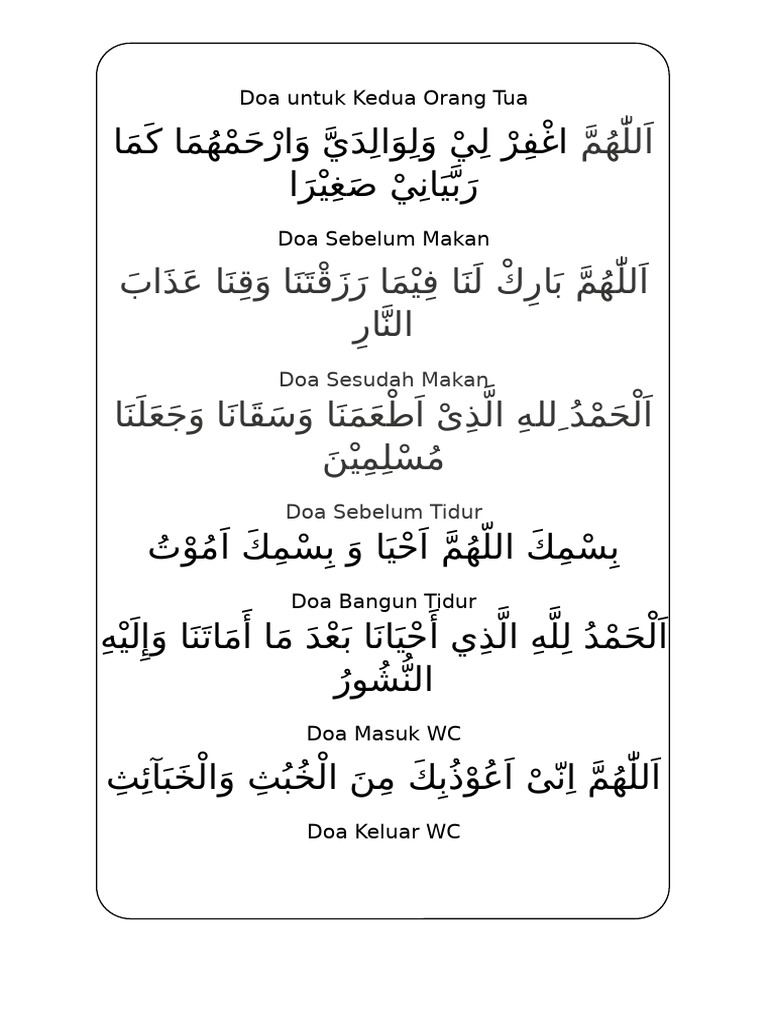 Doa untuk Kedua Orang Tua
اَللّٰهُمَّ اغْفِرْ لِيْ وَلِوَالِدَيَّ وَارْحَمْهُمَا كَمَا
رَبَّيَانِيْ صَغِيْرَا
Doa Sebelum Makan
اَللّٰهُمَّ بَارِكْ لَنَا فِيْمَا رَزَقْتَنَا وَقِنَا عَذَابَ
النَّارِ
Doa Sesudah Makan
اَلْحَمْدُ ِللهِ الَّذِىْ اَطْعَمَنَا وَسَقَانَا وَجَعَلَنَا
مُسْلِمِيْنَ
Doa Sebelum Tidur
بِسْمِكَ اللّهُمَّ اَحْيَا وَ بِسْمِكَ اَمُوْتُ
Doa Bangun Tidur
اَلْحَمْدُ لِلَّهِ الَّذِي أَحْيَانَا بَعْدَ مَا أَمَاتَنَا وَإِلَيْهِ
النُّشُورُ
Doa Masuk WC
اَللّٰهُمَّ اِنّىْ اَعُوْذُبِكَ مِنَ الْخُبُثِ وَالْخَبَآئِثِ
Doa Keluar WC